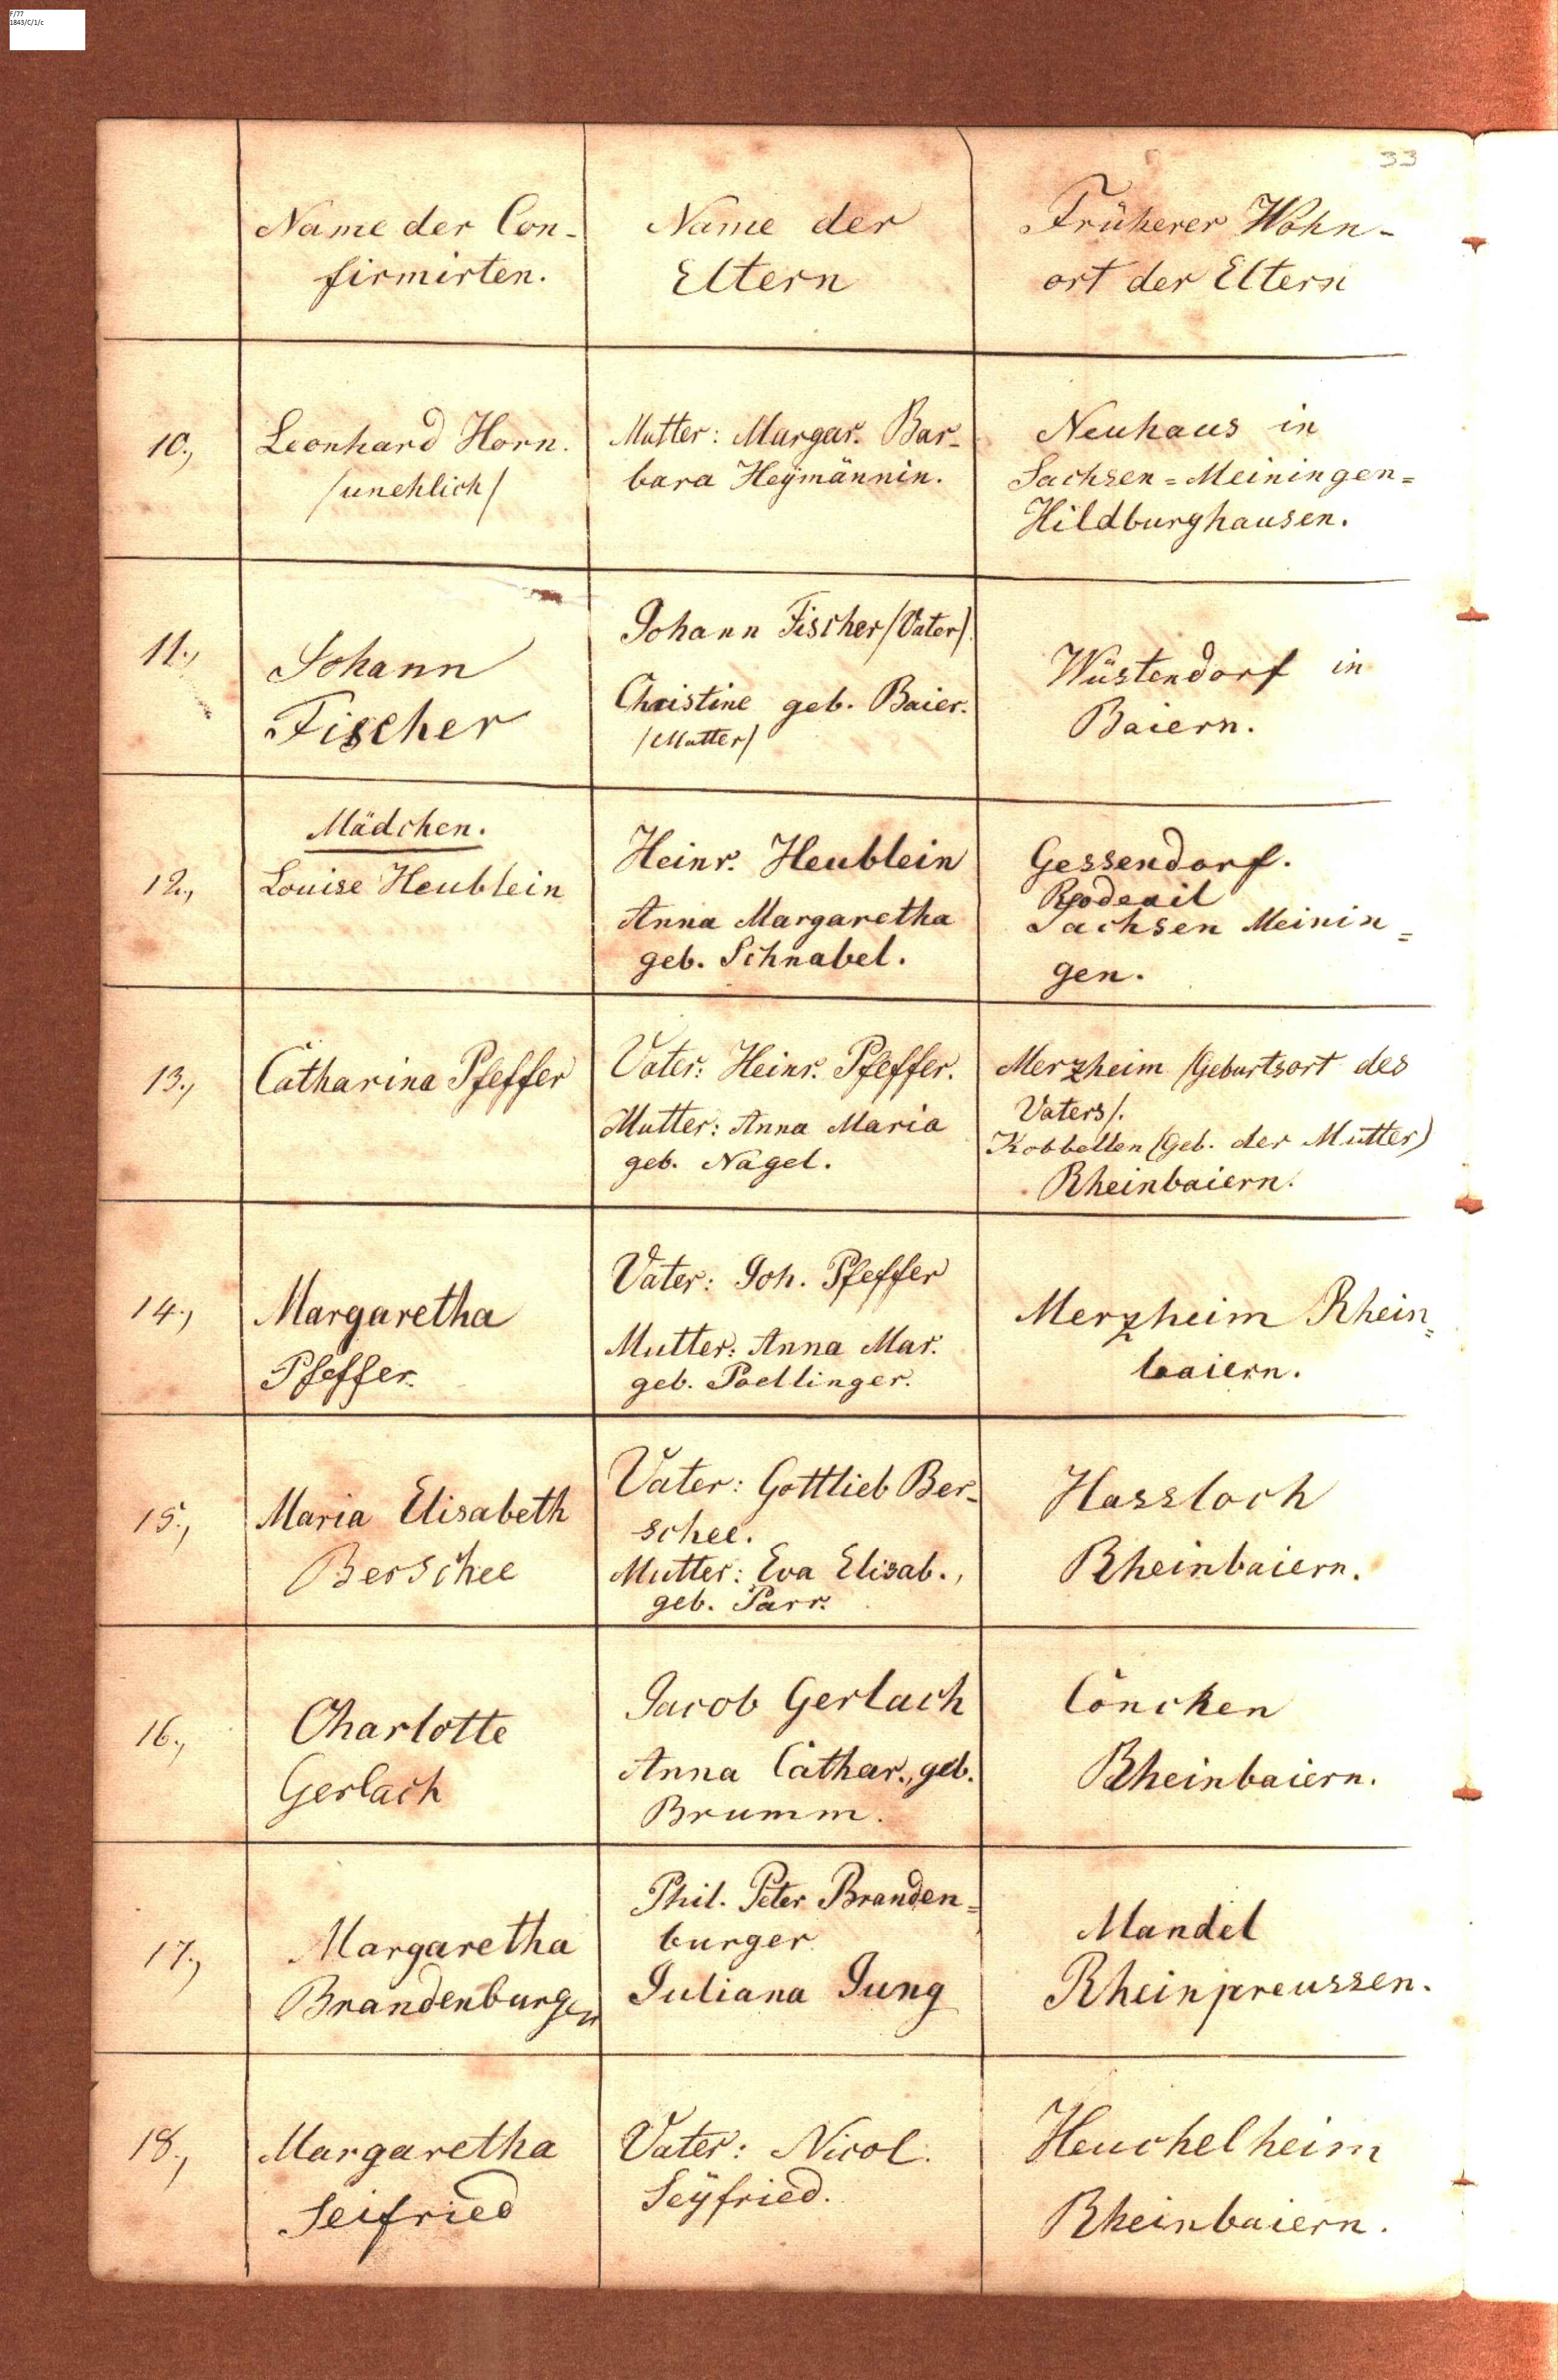 F/77
1843/C/1/c
33
Name der Con-
firmirten.
Name der
Eltern
Früherer Wohn-
ort der Eltern
10.,
Leonhard Horn.
/unehlich/
Mutter: Margar. Bar-
bara Heÿmännin.
Neuhaus in
Sachsen=Meiningen=
Hildburghausen.
11.,
Johann
Fischer
Johann Fischer /Vater/.
Christine geb. Baier.
/Mutter/
Wüstendorf in
Baiern.
Mädchen.
12.,
Louise Heublein
Heinr. Heublein
Anna Margaretha
geb. Schnabel.
Gessendorf.
Sachsen Meinin=
gen.
13.,
Catharina Pfeffer
Vater: Heinr. Pfeffer.
Mutter: Anna Maria
geb. Nagel.
Merzheim /Geburtsort des
Vaters/.
(Geb. der Mutter)
Rheinbaiern.
14.,
Margaretha
Pfeffer.
Vater: Joh. Pfeffer
Mutter: Anna Mar.
geb. Poellinger.
Merzheim Rhein=
baiern.
15.,
Maria Elisabeth
Berschee
Vater: Gottlieb Ber-
schee.
Mutter: Eva Elisab.,
geb. Parr.
Hassloch
Rheinbaiern.
16.,
Charlotte
Gerlach
Jacob Gerlach
Anna Cathar., geb.
Brumm.
Concken
Rheinbaiern.
17.,
Margaretha
Brandenburger
Phil. Peter Branden=
burger
Juliana Jung
Mandel
Rheinpreussen.
18.,
Margaretha
Seifried
Vater: Nicol.
Seÿfried.
Heuchelheim
Rheinbaiern.